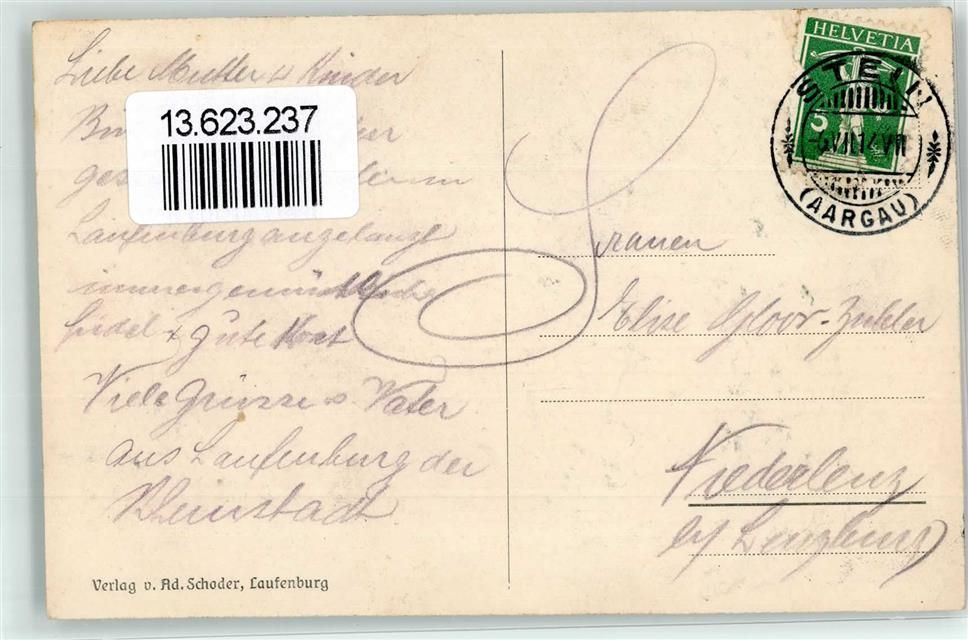 Liebe Mutter u Kinder
13.623.237
ges
Laufenburg angelangt
immer gemüthliche
fidel + gute Kost
Viele Grüsse v Vater
aus Laufenburg der
Rheinstadt
Verlag v. Ad. Schoder, Laufenburg
HELVETIA
5
STEIN
VII.14
(AARGAU)
Frauen
Elise Gloor-
Niederlenz
b/ Lenzburg